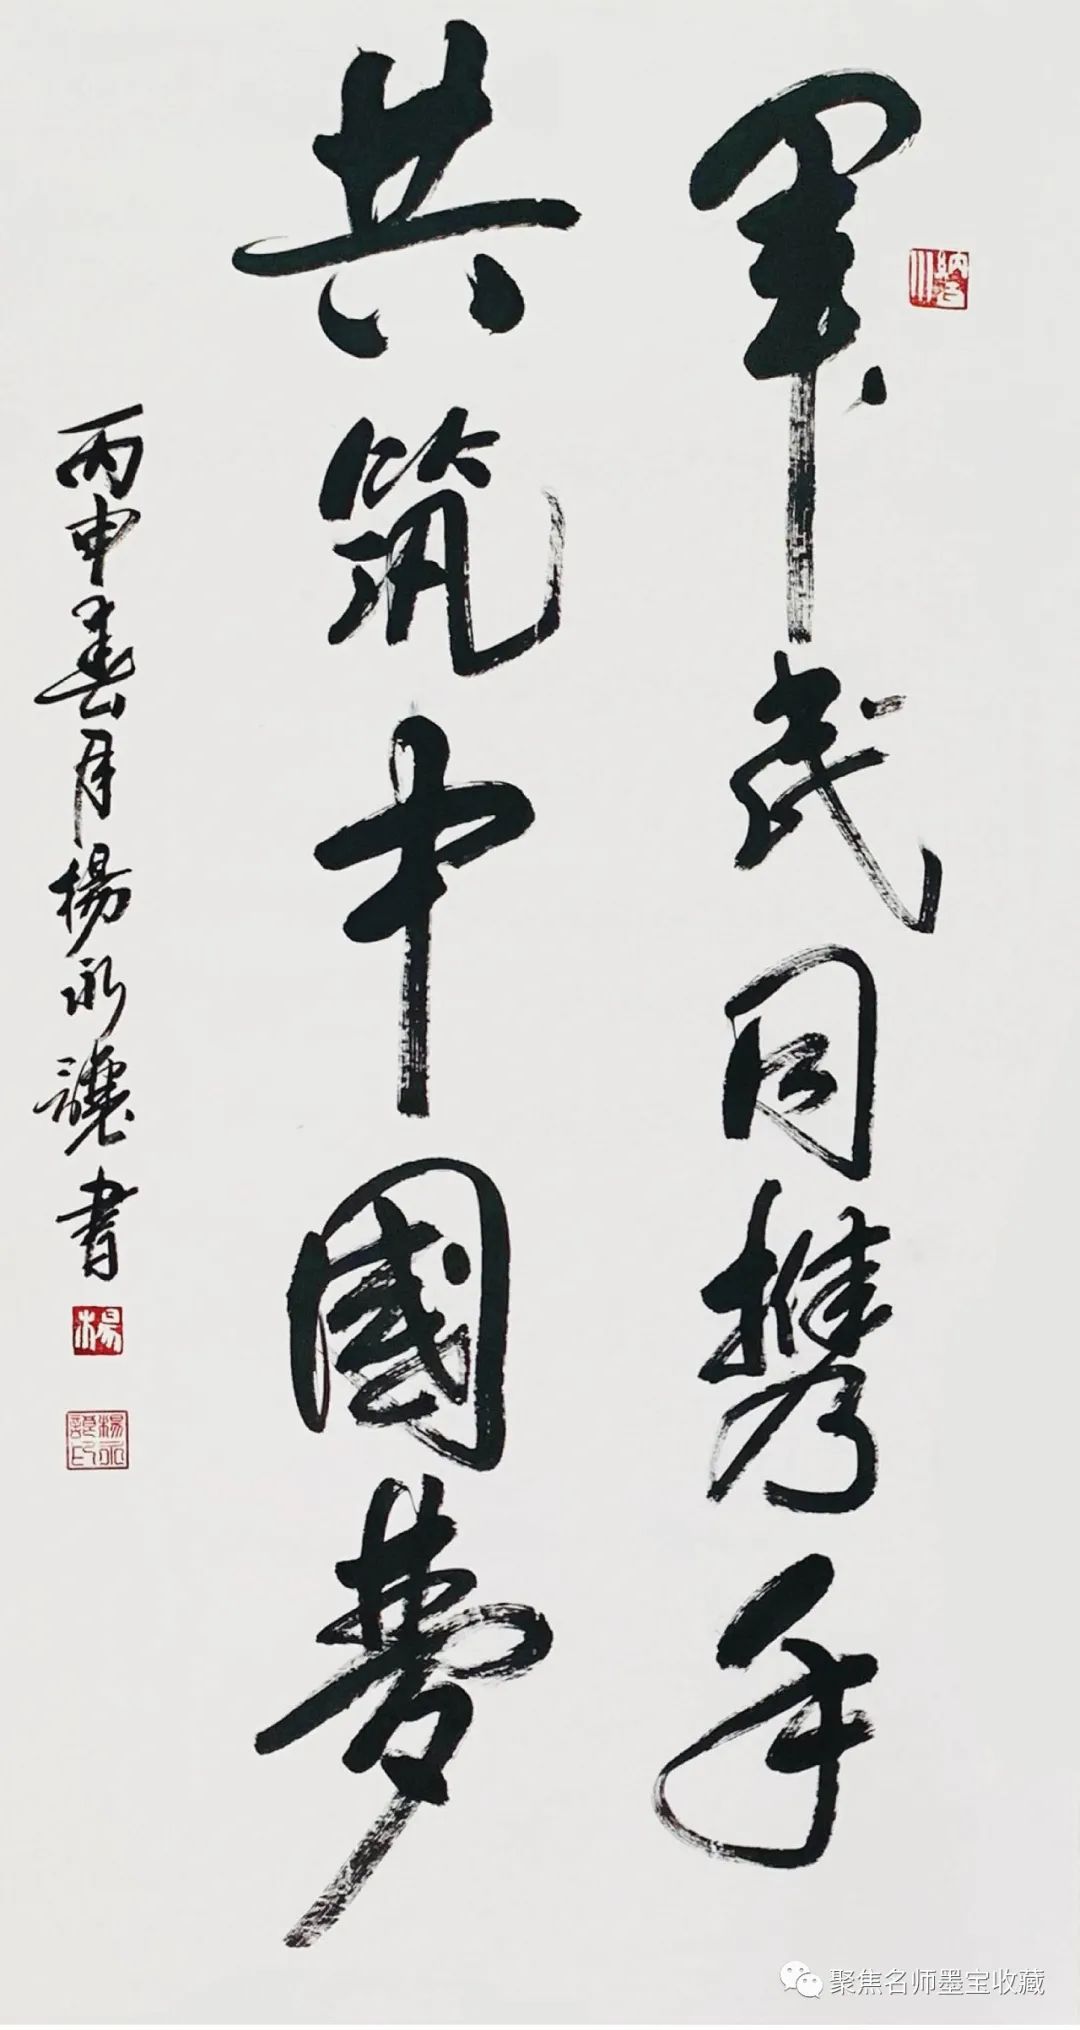 軍民同携手
共筑中國夢
丙申春月楊永讓書
楊
楊永讓印
聚焦名师墨宝收藏